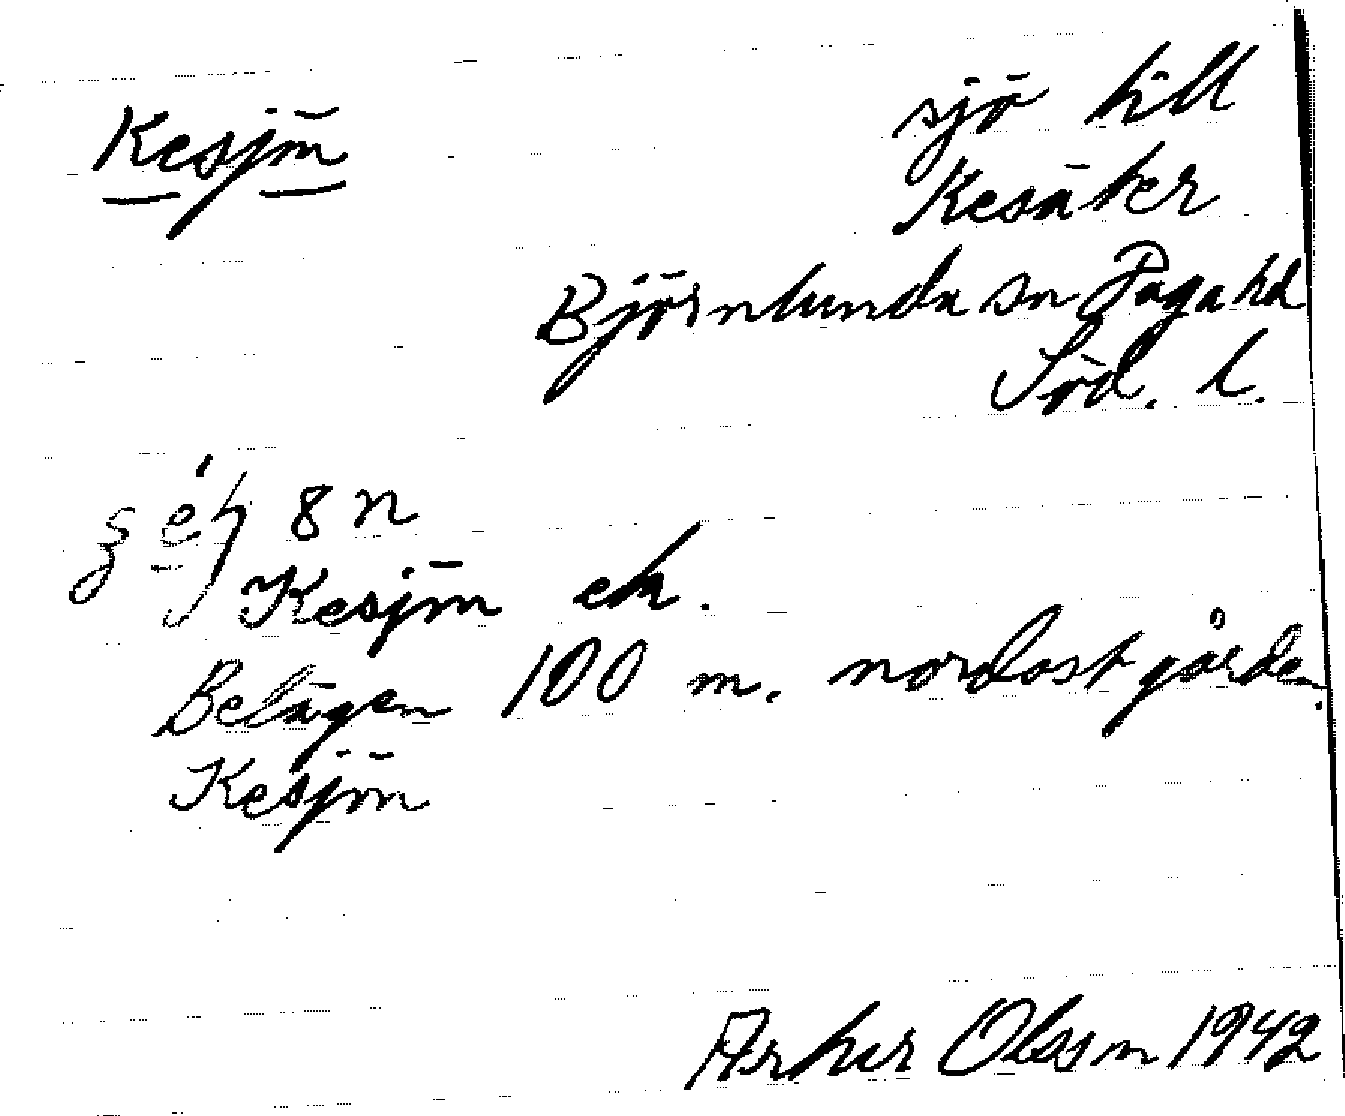 Kesjön
sjö till
Kesäter
Björnlunda sn Daga hd
Söd. l.
Kesjön ek.
Belägen 100 m. nordost gården.
Kesjön
Arthur Olsson 1942